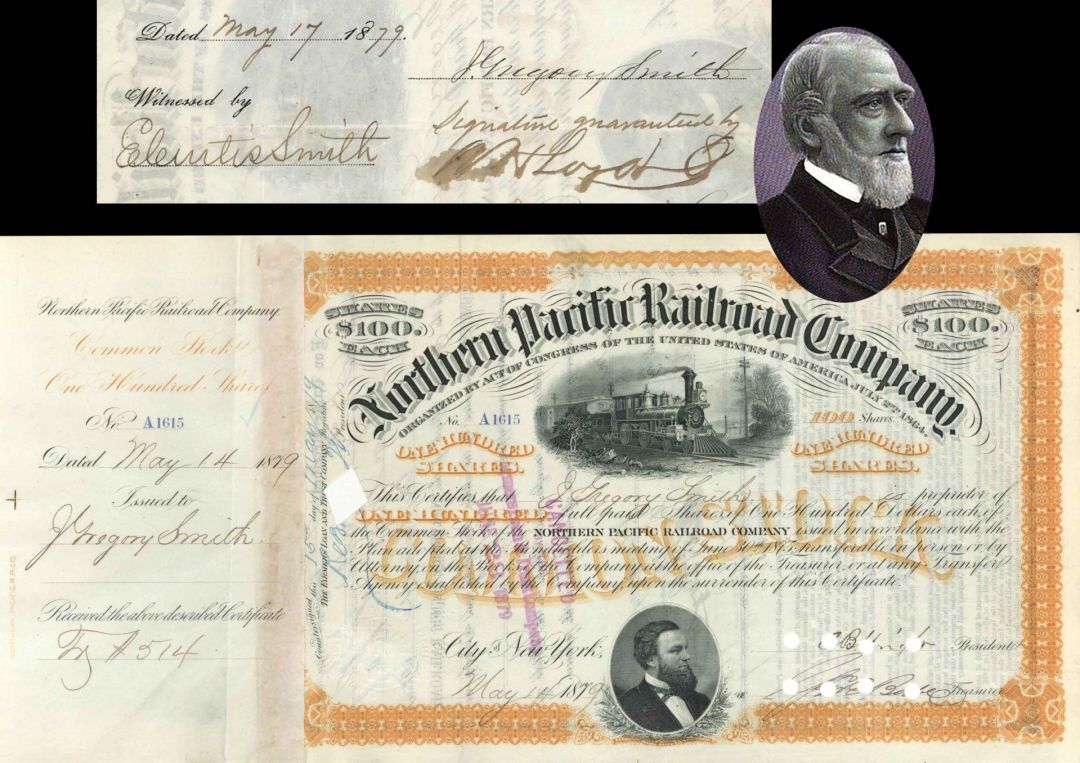 Dated May 17 1879.
J Gregory Smith
Witnessed by
Signature guaranteed by
Smith
Northern Pacific Railroad Company.
Common Stock
One Hundred Shares
No. A1615
Dated May 14 1879
Issued to
J Gregory Smith
Received the above described Certificate
A 514
Countersigned this 15 day of
THE FARMERS' LOAN AND TRUST COMPANY
SHARES
$100.
EACH
SHARES
$100.
EACH
Northern Pacific Railroad Company.
ORGANIZED BY ACT OF CONGRESS OF THE UNITED STATES OF AMERICA JULY 2ND 1864.
No. A1615
100 Shares.
ONE HUNDRED
SHARES.
ONE HUNDRED
SHARES.
This Certifies that J Gregory Smith is proprietor of
ONE HUNDRED full paid Shares of One Hundred Dollars each, of
the Common Stock of the NORTHERN PACIFIC RAILROAD COMPANY issued in accordance with the
Plan adopted at the Bondholders meeting of June 30th 1875, transferable in person or by
Attorney, in the Books of the Company at the office of the Treasurer, or at any Transfer
Agency established by the Company, upon the surrender of this Certificate.
COMMON STOCK
CANCELLED
City of New York,
May 14 1879
President
Treasurer